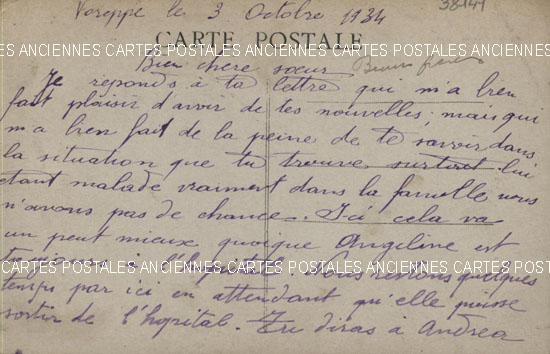 Voreppe le 3 Octobre 1934
38141
CARTE POSTALE
ANCIENNES CARTES POSTALES ANCIENNES CARTES POSTALES ANCIENNES CARTES POSTALES
Bien chère sœur
Je reponds à ta lettre qui m'a bien
fait plaisir d'avoir de tes nouvelles, mais qui
m'a bien fait de la peine de te savoir dans
la situation que tu trouve surtout lui
etant malade vraiment dans la famille nous
n'avons pas de chance. Ici cela va
un peut mieux quoique Angeline est
toujours à l'hopital. Nous restons quelques
CARTES POSTALES ANCIENNES CARTES POSTALES ANCIENNES CARTES POSTALES ANCIENNES
temps par ici en attendant qu'elle puisse
sortir de l'hopital. Tu diras à Andrea